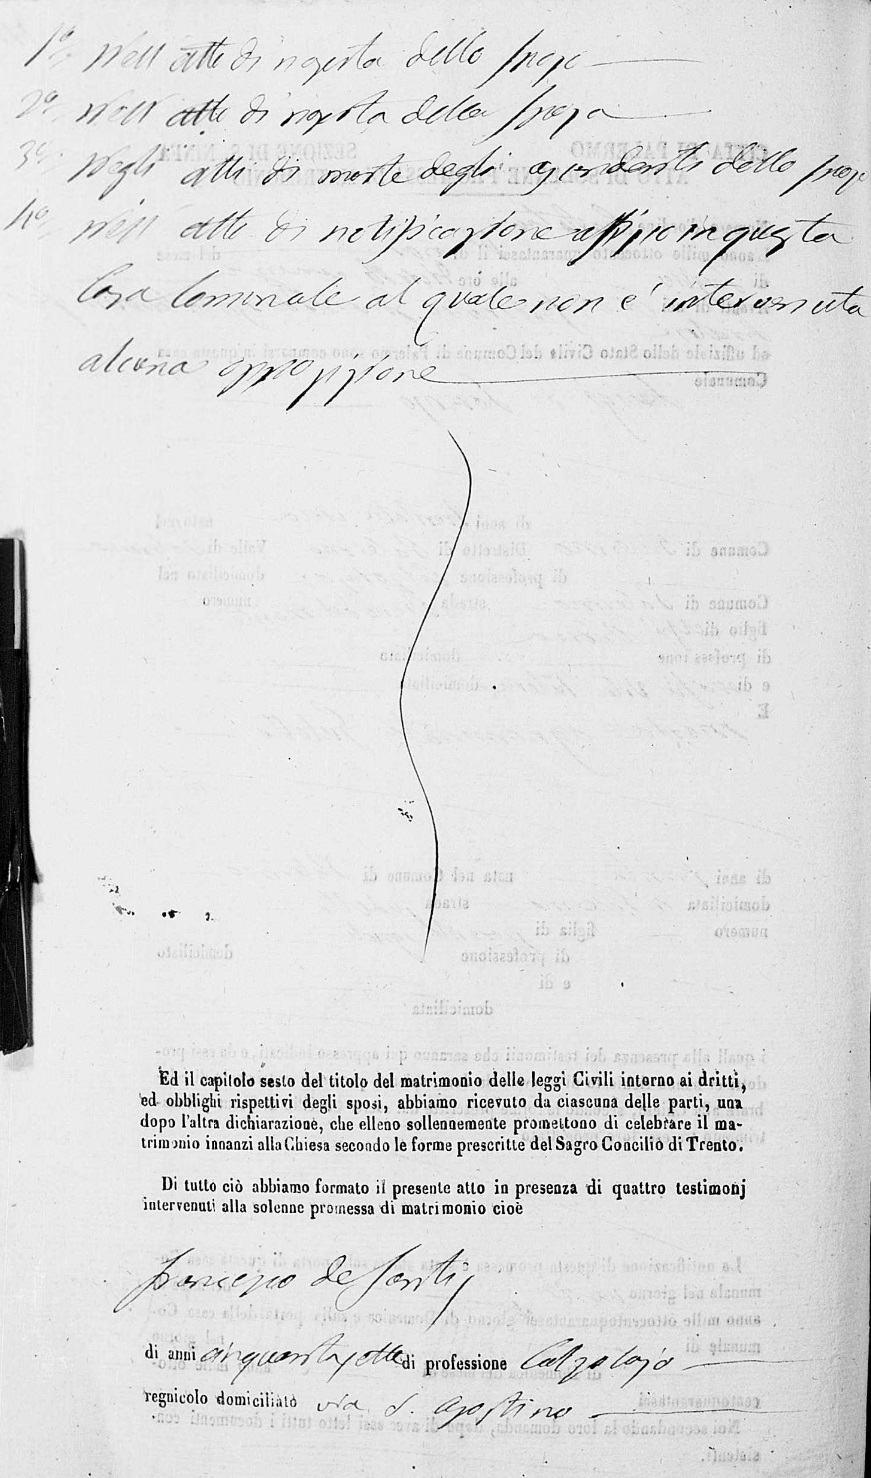 1º Nell'atto di nascita dello sposo
2º Nell'atto di nascita della sposa
3º Negli atti di morte degli ascendenti dello sposo
4º Nell'atto di notificazione affisso in questa
Casa Comunale al quale non e' intervenuta
alcuna opposizione
Ed il capitolo sesto del titolo del matrimonio delle leggi Civili intorno ai dritti,
ed obblighi rispettivi degli sposi, abbiamo ricevuto da ciascuna delle parti, una
dopo l'altra dichiarazione, che elleno sollennemente promettono di celebrare il ma-
trimonio innanzi alla Chiesa secondo le forme prescritte del Sagro Concilio di Trento.
Di tutto ciò abbiamo formato il presente atto in presenza di quattro testimonj
intervenuti alla solenne promessa di matrimonio cioè
Francesco de Santis
di anni cinquantasette di professione Calzolajo
regnicolo domiciliato via S. Agostino